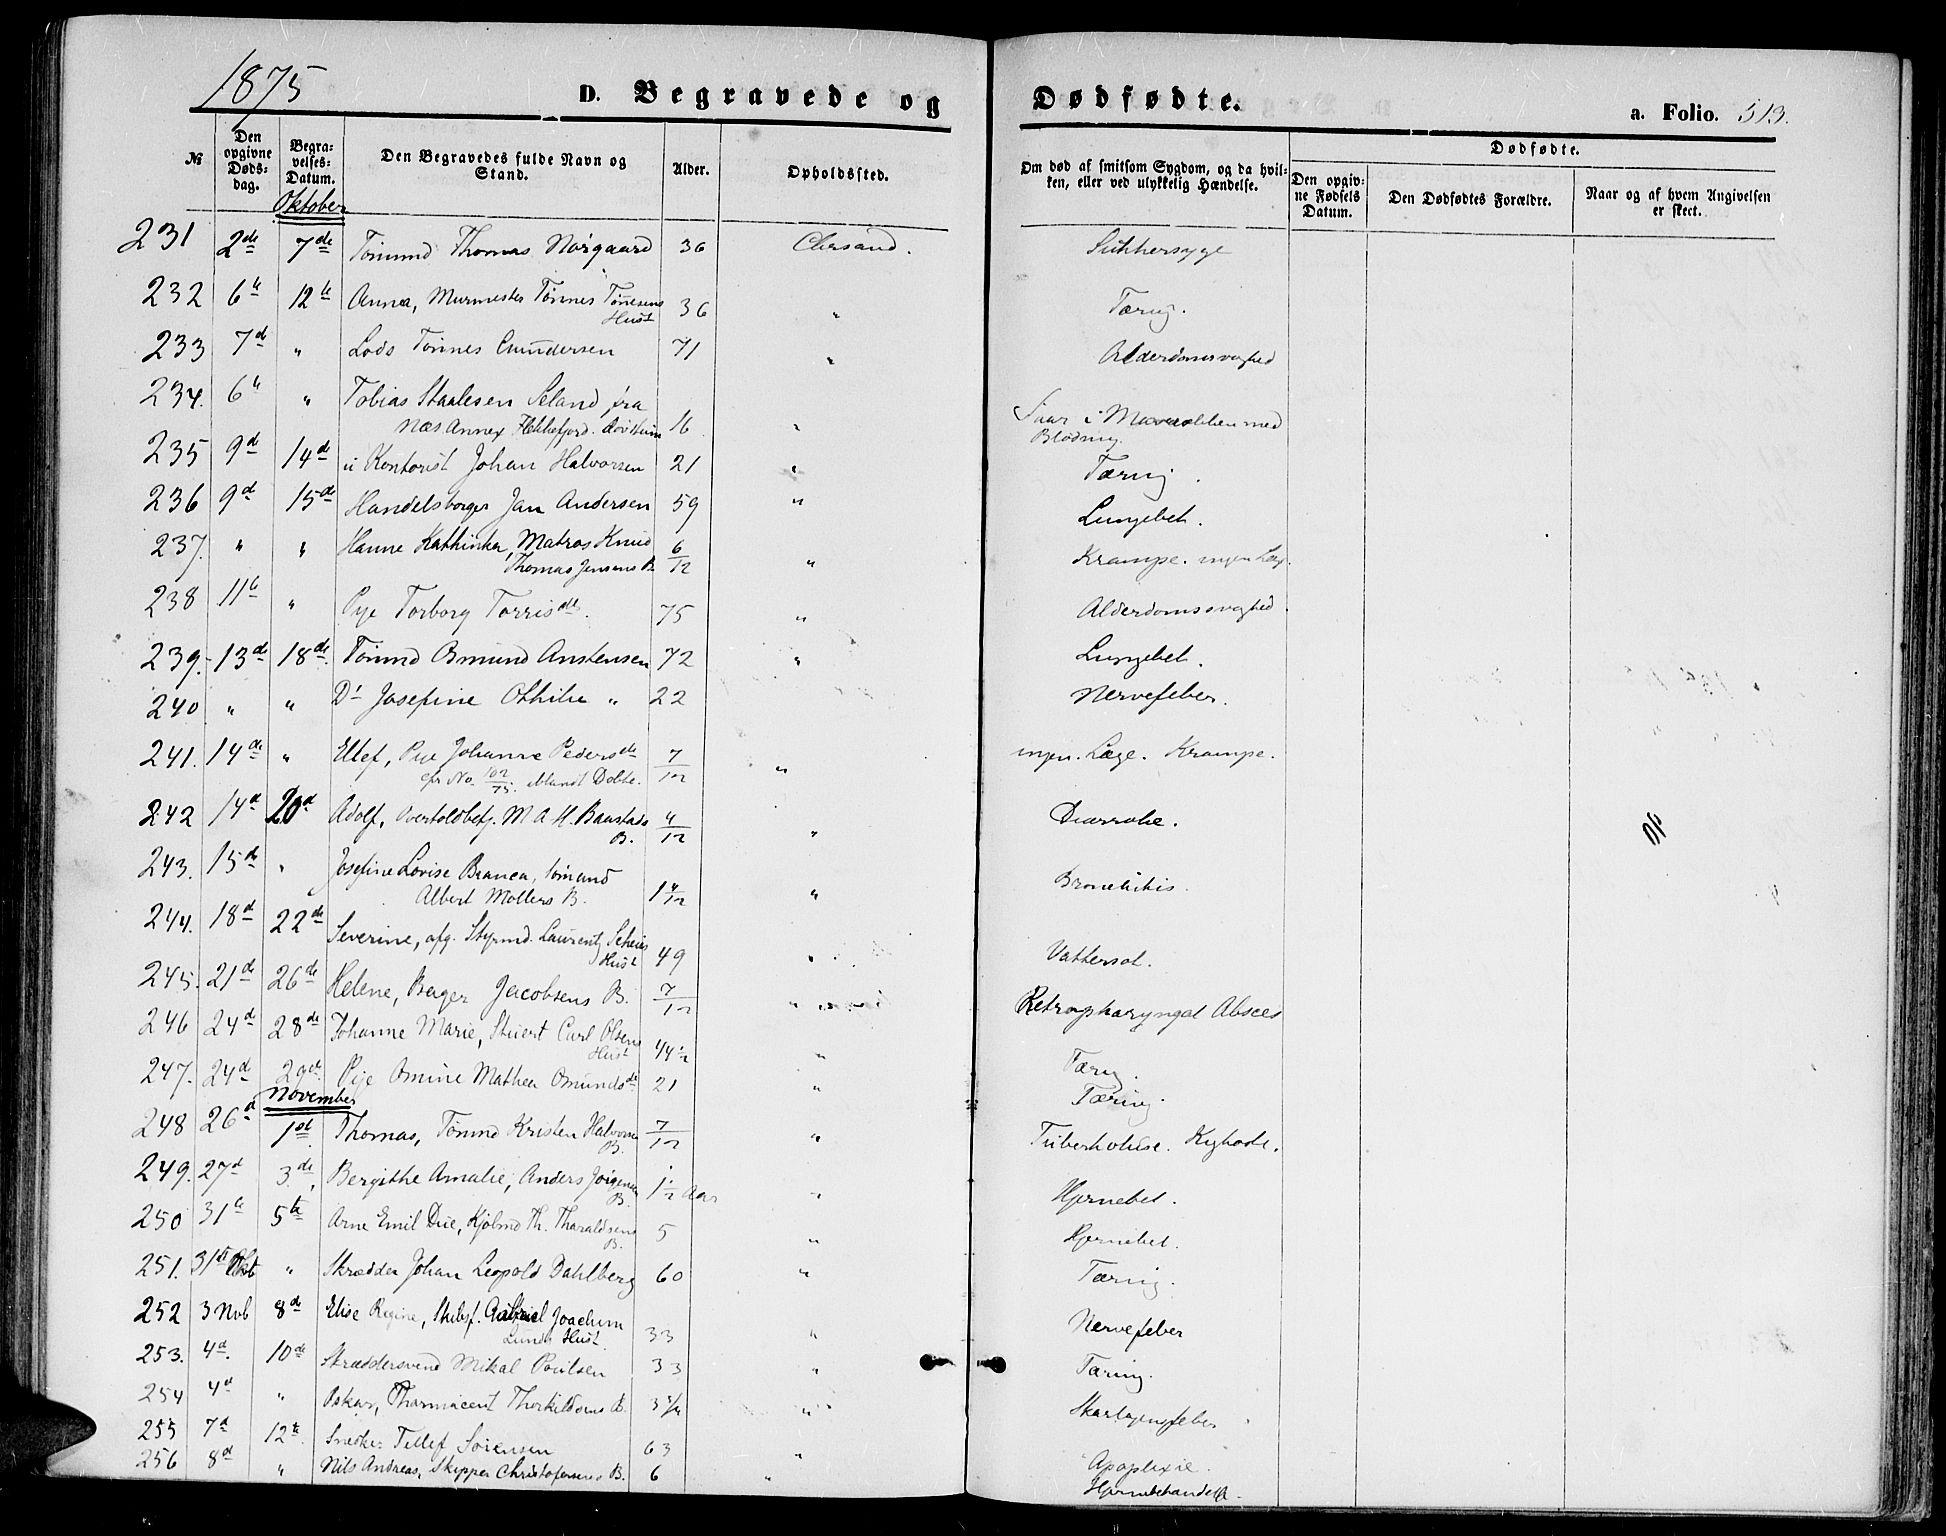 1875
D. Begravede og Dødfødte.
a. Folio. 513.
№ Den opgivne Døds-dag. Begra-velses-Datum. Den Begravedes fulde Navn og Stand. Alder. Opholdssted. Om død af smitsom Sygdom, og da hvil-ken, eller ved ulykkelig Hændelse. Dødfødte. Den opgiv-ne Fødsels Datum. Den Dødfødtes Forældre. Naar og af hvem Angivelsen er skeet.
Oktober
231 2de 7de Tømmd Thomas Norgaard 36 Chrsand. Sukkersyge
232 6te 12te Anna, Murmester Tønnes Tønesens Hust 36 " Tæring.
233 7d " Lods Tønnes Gundersen 71 " Alderdomssvaghed
234. 6te " Tobias Staalesen Seland fra
Næs Annex Flekkefjord. 16 " Saar i Mavesækken med Blødning.
235 9d 14de u Kontorist Johan Halvorsen 21 " Tæring.
236 9d 15de Handelsborger Jan Andersen 59 " Lungebet.
237. " " Hanne Kathinka, Matros Knud
Thomas Jensens B. 6/12 " Krampe. ingen Læge.
238 11te " Pige Torborg Torrisdtr. 75 " Alderdomssvaghed.
239. 13de 18de Tømmd Omund Anstensen 72 " Lungebet.
240 " " Dr Josefine Othilie " 22 Nervefeber.
241. 14de " Ellef, Pige Johanne Pedersdtr
cfr No. 102/75. 7/12 " ingen Læge. Krampe.
242 14d 20d Adolf, Overtoldbetj. M A H. Baastads B. 4/12 " Diarrohe.
243. 15de " Josefine Lovise Branca, Tømmd
Albert Møllers B. 1 4/12 " Bronchitis.
244. 18d 22de Severine, afg. Styrmd. Laurentz Hust 49 " Vattersot.
245. 21de 26de Helene, Børger Jacobsens B. 7/12 " Retropharyngal Absces
246 24d 28de Johanne Marie, Stuert Carl Olsens Hust 44 1/2 " Tæring.
247. 24d 29de Pige Omine Mathea Omundsdtr 21 " Tæring.
November
248 26d 1st Thomas, Tømmd Kristen Halvorsens B. 7/12 " Tuberkulose. Kighoste.
249. 27d 3de Bergithe Amalie, Anders Jørgensens B. 1 1/2 Aar " Hjernebet.
250 31te 5te Arne Emil Due, Kjølmd Th. Tharaldsens B. 5 " Hjernebet.
251. 31te Okt " Skrædder Johan Leopold Dahlberg 60 " Tæring.
252 3 Nvb 8de Elise Regine, Skibsf. Gabriel Joachim
Lunds Hust. 33 " Nervefeber
253. 4d. 10de Skræddersvend Mikal Poulsen 33 " Tæring.
254 4d " Oskar, Pharmacent Thorkildsens B. 3 3/4 " Skarlagensfeber
255 7d 12te Snedker Tellef Sørensen 63 " Apoplexie.
256 8d " Nils Andreas, Skipper Christofersens B. 6 "